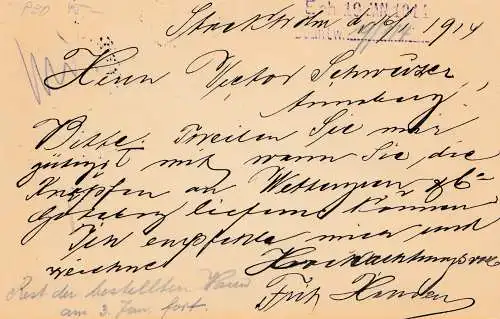 Stockholm d. 16/1 1914
Herrn Victor Schweizer,
Annaberg.
Bitte teilen Sie mir
gütigst mit wann Sie die
Knöpfen an Wettergren & Co
Göteborg liefern können
Ich empfehle mich und
zeichne Hochachtungsvoll
Rest der bestellten Waren
am 3. Jan. fort.